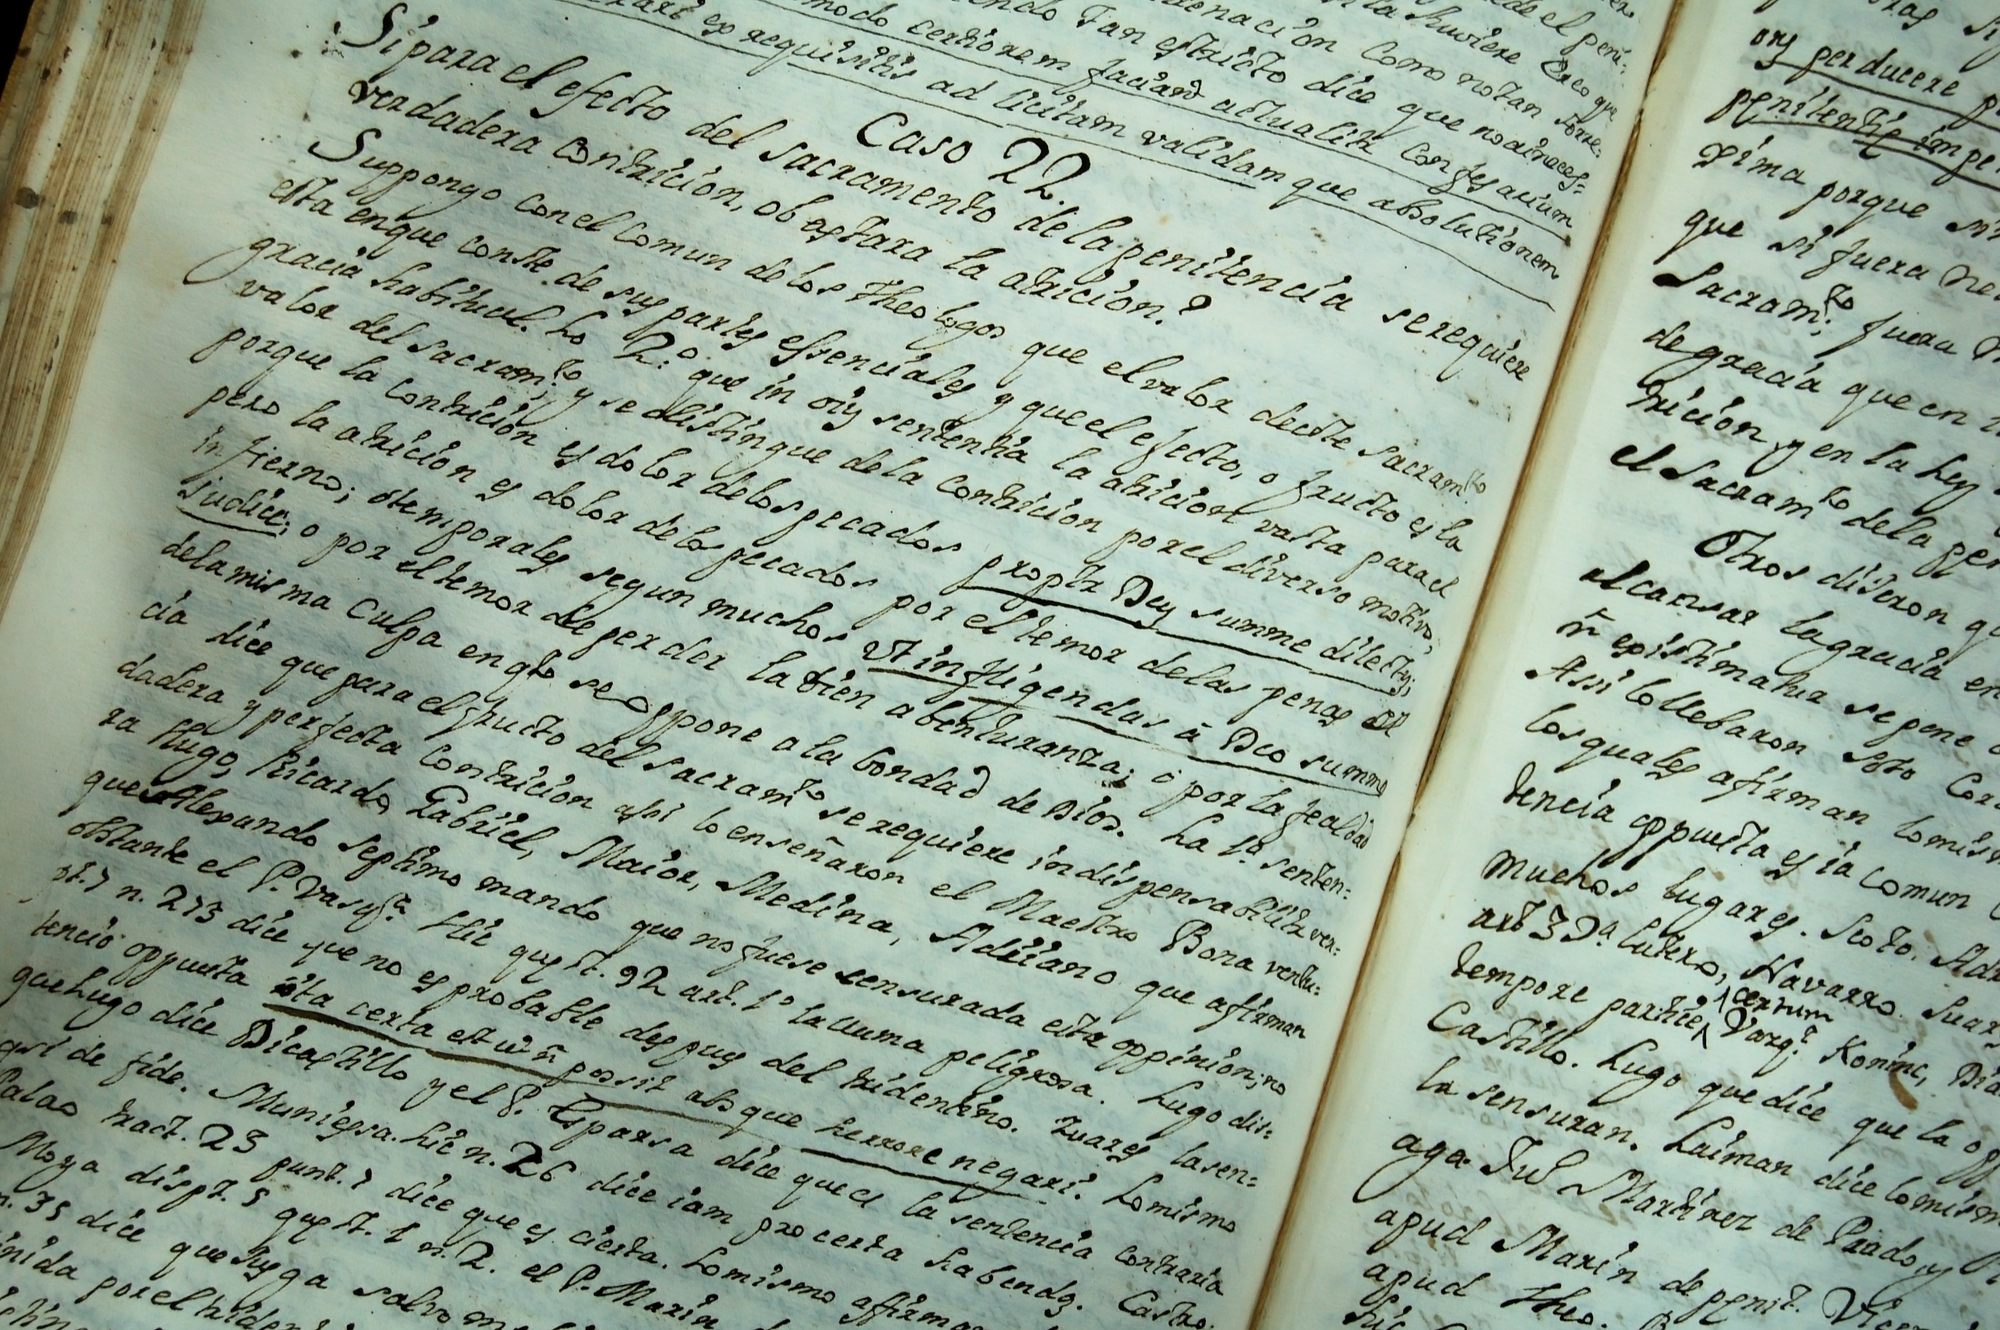 de el peni-
la huviere Creo que
denacion como no tan some-
endo tan estricto dice que no ai neces-
modo certiorem faciand actualit confessarium
ex requisitis ad licitam validam que absolutionem
Caso 22.
Si para el efecto del sacramento de la penitencia se requiere
verdadera contricion, ob estara la atricion?
Suppongo con el comun de los theologos que el valor de este sacramto
esta en que conste de sus partes essenciales y que el efecto, o fructo es la
gracia habitual. Lo 2o. que in oiũ sententia la atricion vasta para el
valor del sacramto. y se distingue de la contricion por el diverso motivo,
porque la contricion es dolor de los pecados propter Deũ summe dilectũ;
pero la atricion es dolor de los pecados por el temor de las penas del
infierno; o temporales segun muchos vt infligendas â Deo summo
judice; o por el temor de perder la bien abenturanza; o por la fealdad
de la misma culpa en qto se oppone a la bondad de Dios. La 1a. senten-
cia dice que para el fructo del sacramto se requiere indispensabilitr ver-
dadera y perfecta contricion assi lo enseñaron el Maestro Bona ventu-
ra Hugo, Ricardo, Gabriel, Maior, Medina, Adriano que afirman
que Alexandro septimo mando que no fuese censurada esta oppinion; no
obstante el P. Vasqz. Hic quæst. 92 art. 1o la llama peligrosa. Lugo dis-
st. 7 n. 273 dice que no es probable despues del tridentino. Suares la sen-
tencia oppuesta ita certa est ut ñ possit absque herrore negari. Lo mismo
que Lugo dice Dicastillo y el P. Esparsa dice que es la sentencia contraria
qsi de fide. Muniessa. hic n. 26 dice iam pro certa habendã. Castro
Palao tract. 23 punt. 7 dice que es cierta. Lo mismo afirma
Moya dispt. 5 quæst. 1 n. 2. el P. Marin
n. 35 dice que Juzga salvo
inida por el tridenti
ory perducere
penitentiæ impe
xima porque
que si fuera ne
Sacramto. fuera
de gracia que en
tricion, y en la ley
el sacramto de la pen
Otros dixeron q
alcansar la gracia en
ñ existimatur se pene
Assi lo llebaron Soto Cor
los quales afirman lo mis
tencia oppuesta es la comun
muchos lugares. Scoto. Adr
art 3 Da. Lutero, Navarro. Suar
tempore partice, certum Vazqz. Koninc, Dia
Castillo. Lugo que dice que la op
la sensuran. Laiman dice lo mism
aga. Jul Martinez de Prado, y
apud Marin de penit. Vicen
apud theo.